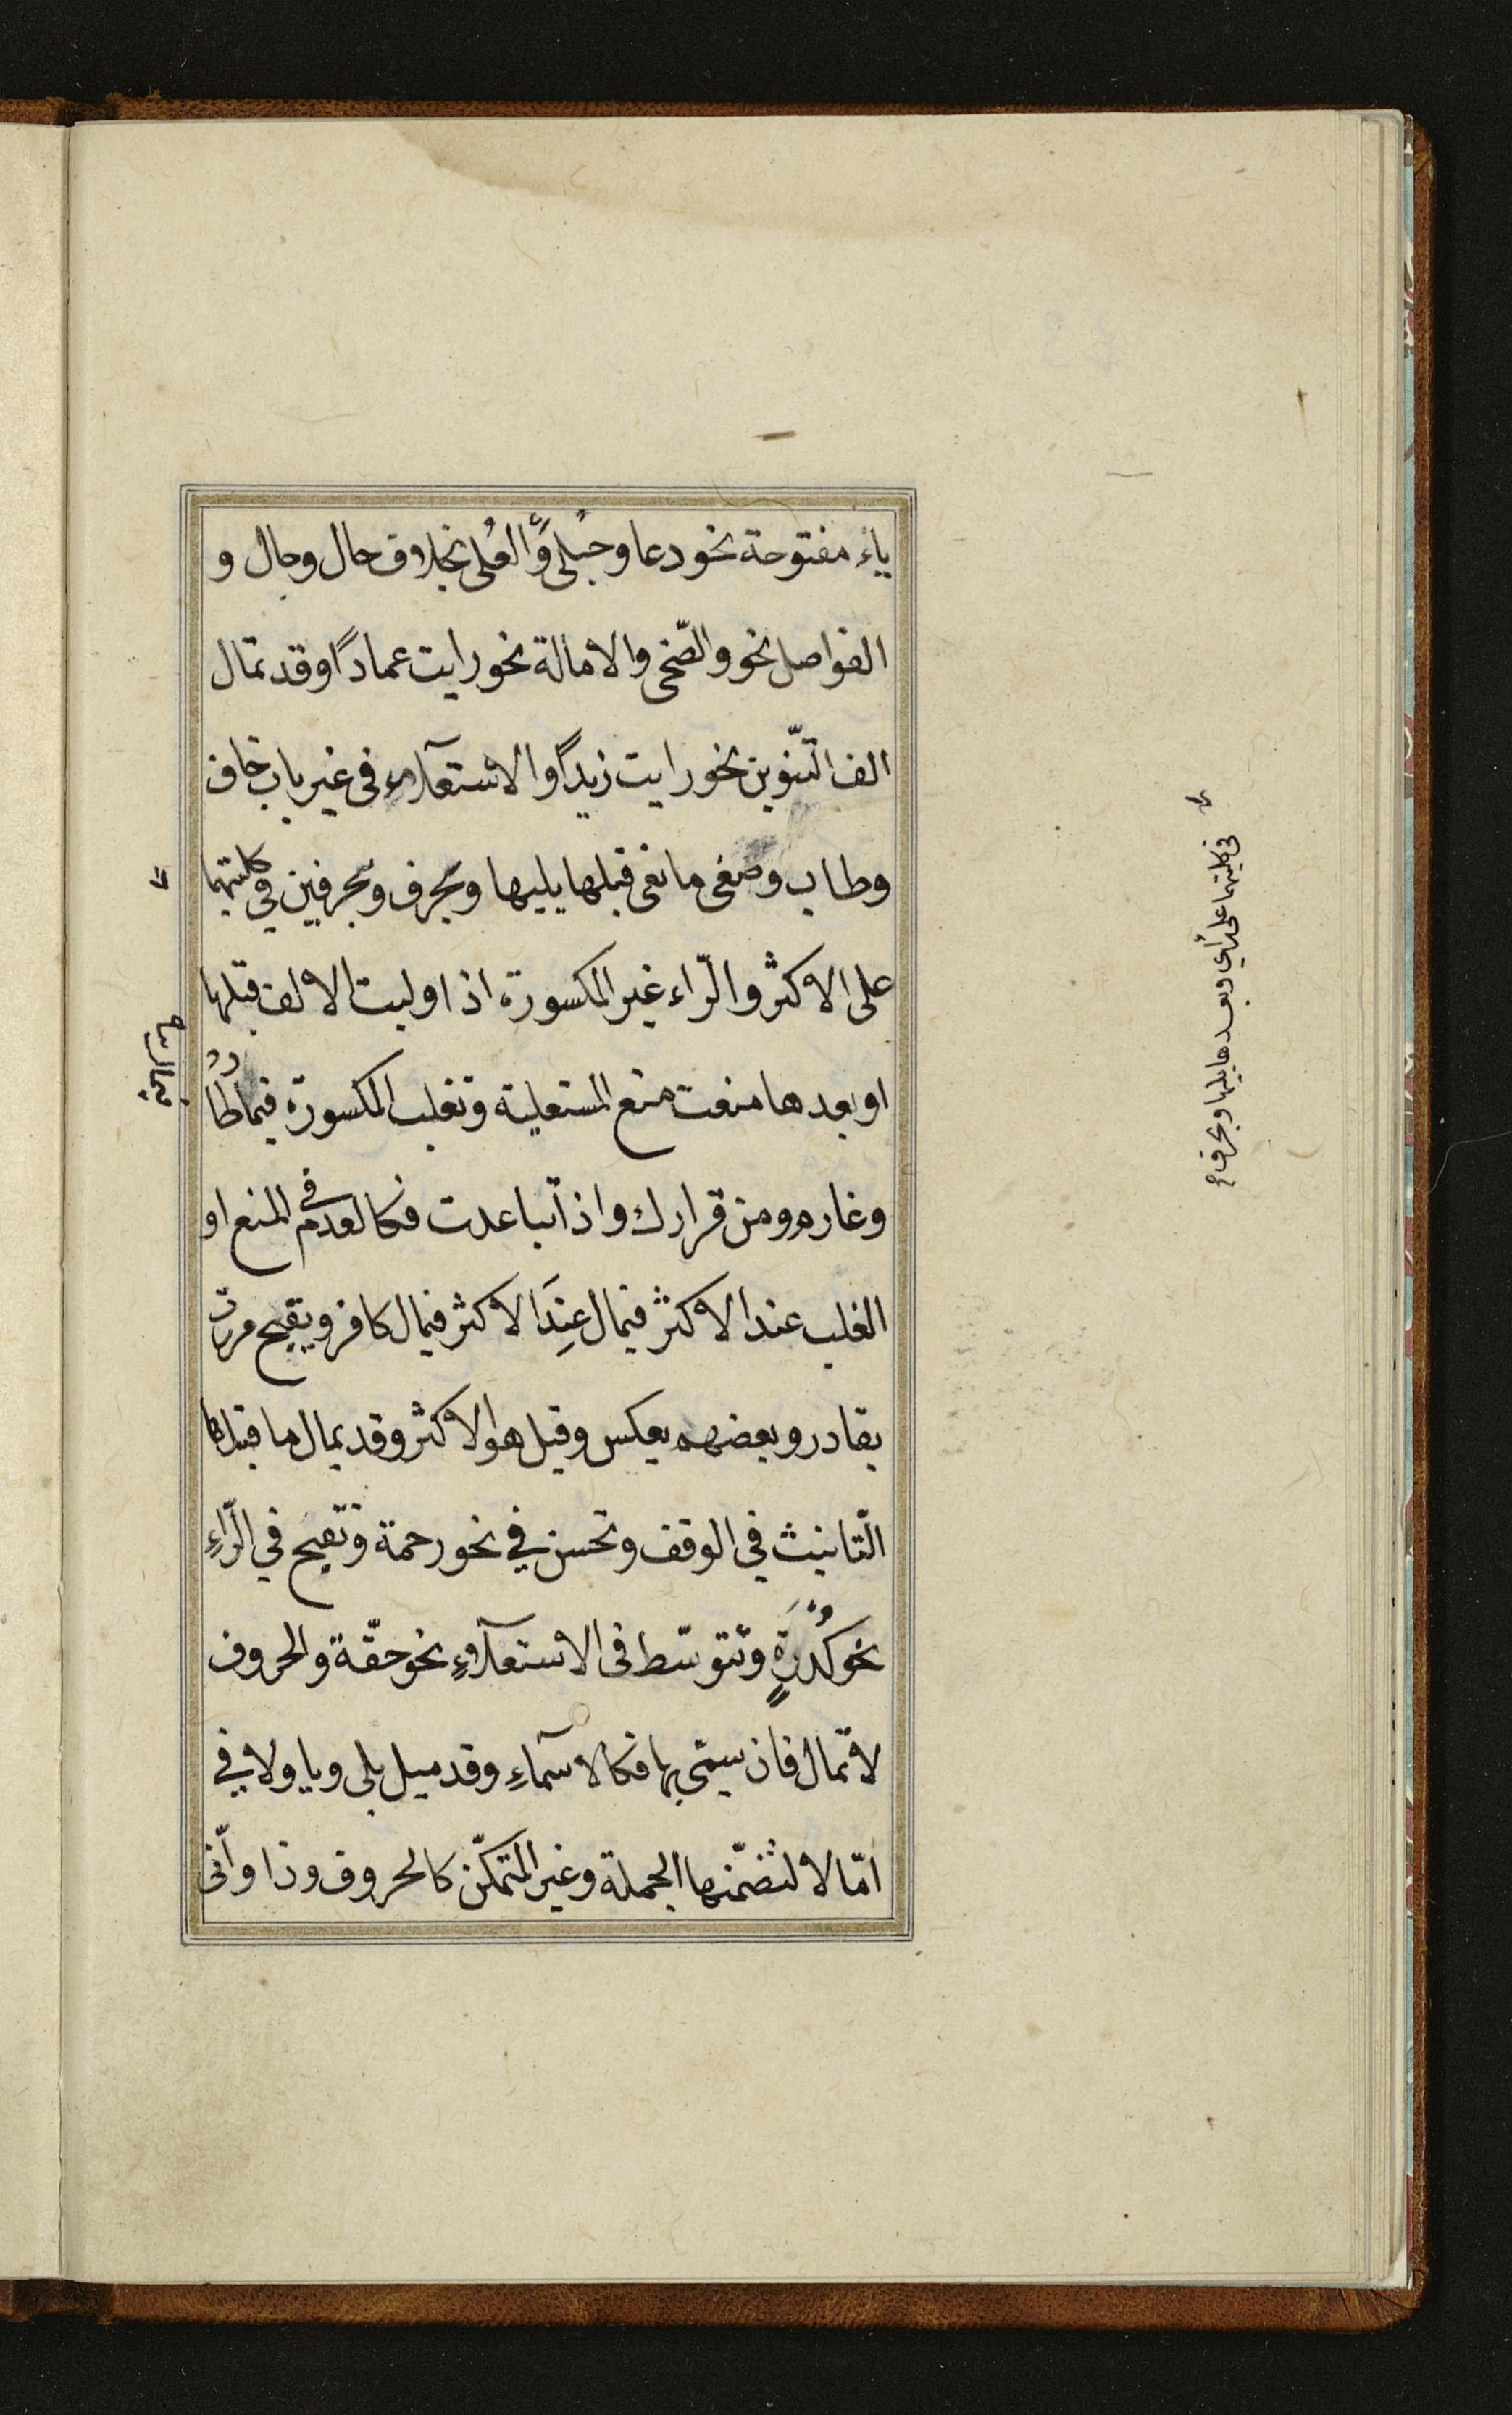 ياء مفتوحة نحو دعا وحبلى والعلى بخلاف حال وجال و
الفواصل نحو والضّحى والامالة نحو رايت عمادًا وقد تمال
الف التّنوين نحو رايت زيدًا والاستعلآء فى غير باب خاف
وطاب وصغى مانعى قبلها يليها وبحرف وبحرفين فى كلمتها
على الاكثر والرّاء غير المكسورة اذا وليت الالف قبلها
او بعدها منعت منع المستعلية وتغلب المكسورة فيمال طارد
وغارم ومن قرارك واذا تباعدت فكالعدم فى المنع او
الغلب عند الاكثر فيمال عند الاكثر فيمال كافر ويقبح مررت
بقادر وبعضهم يعكس وقيل هو الاكثر وقد يمال ما قبل ها
التّانيث فى الوقف وتحسن في نحو رحمة وتقبح في الرّاءِ
نحو كُدْرَةٍ وتتوسّط فى الاستعلآءِ نحو حقّة والحروف
لا تمال فان سمّى بها فكالاسمآءِ وقد ميل بلى ويا ولا في
امّا لا لتضمّنها الجملة وغير المتمكّن كالحروف وذا وانّى
فى كلمتها على راي وبعدها يليها وبحرف